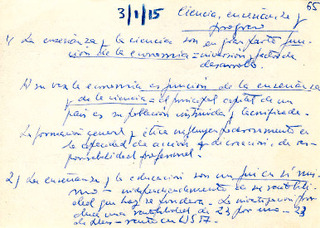 65
3/1/15 Ciencia, enseñanza y
progreso
1) La enseñanza y la ciencia son en gran parte fun-
ción de la economía = inversión, factor de
desarrollo.
A su vez la economía es función de la enseñanza
y de la ciencia = el principal capital de un
país es su población instruida y tecnificada.
La formación general y ética influyen poderosamente en
la capacidad de acción y de creación, de res-
ponsabilidad profesional.
2) La enseñanza y la educación son un fin en sí mis-
mo — independientemente de su rentabili-
dad que hay
La investigación pro-
duce una rentabilidad de 23 por uno — 23
en 1957.